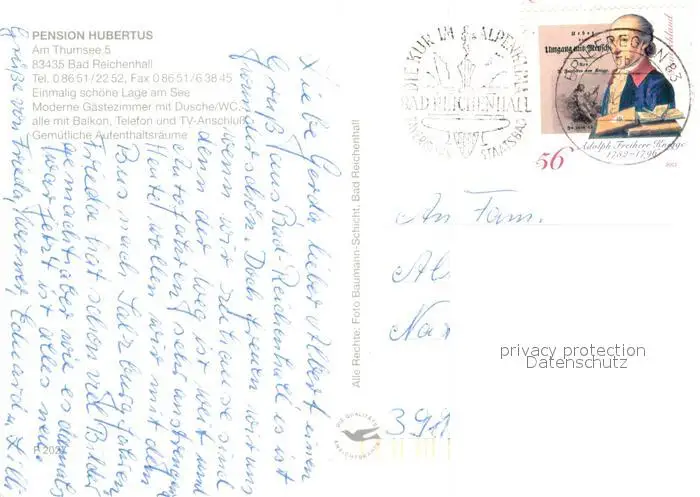 PENSION HUBERTUS
Am Thumsee 5
83435 Bad Reichenhall
Tel. 0 86 51 / 22 52, Fax 0 86 51 / 6 38 45
Einmalig schöne Lage am See
Moderne Gästezimmer mit Dusche/WC
alle mit Balkon, Telefon und TV-Anschluß
Gemütliche Aufenthaltsräume
Liebe Gerda, lieber Albert einen
Gruß aus Bad Reichenhall es ist
wunderschön. Doch freuen wir uns
wenn wir zuhause sind
denn der Weg ist weit und
Autofahren sehr anstrengend
Heute wollen wir mit dem
Bus nach Salzburg fahren
Frieda hat schon viel Bilder
gemacht aber wie es damals
war jetzt ist alles neu.
Grüße von Frieda, Werner, Eduard u. Lilli
Alle Rechte: Foto Baumann-Schicht, Bad Reichenhall
DIE KUR IM ALPENKLIMA
BAD REICHENHALL
STAATSBAD
BRIEFREGION 83
Umgang mit Menschen
Adolph Freiherr Knigge
1752–1796
56
An Fam.
privacy protection
Datenschutz